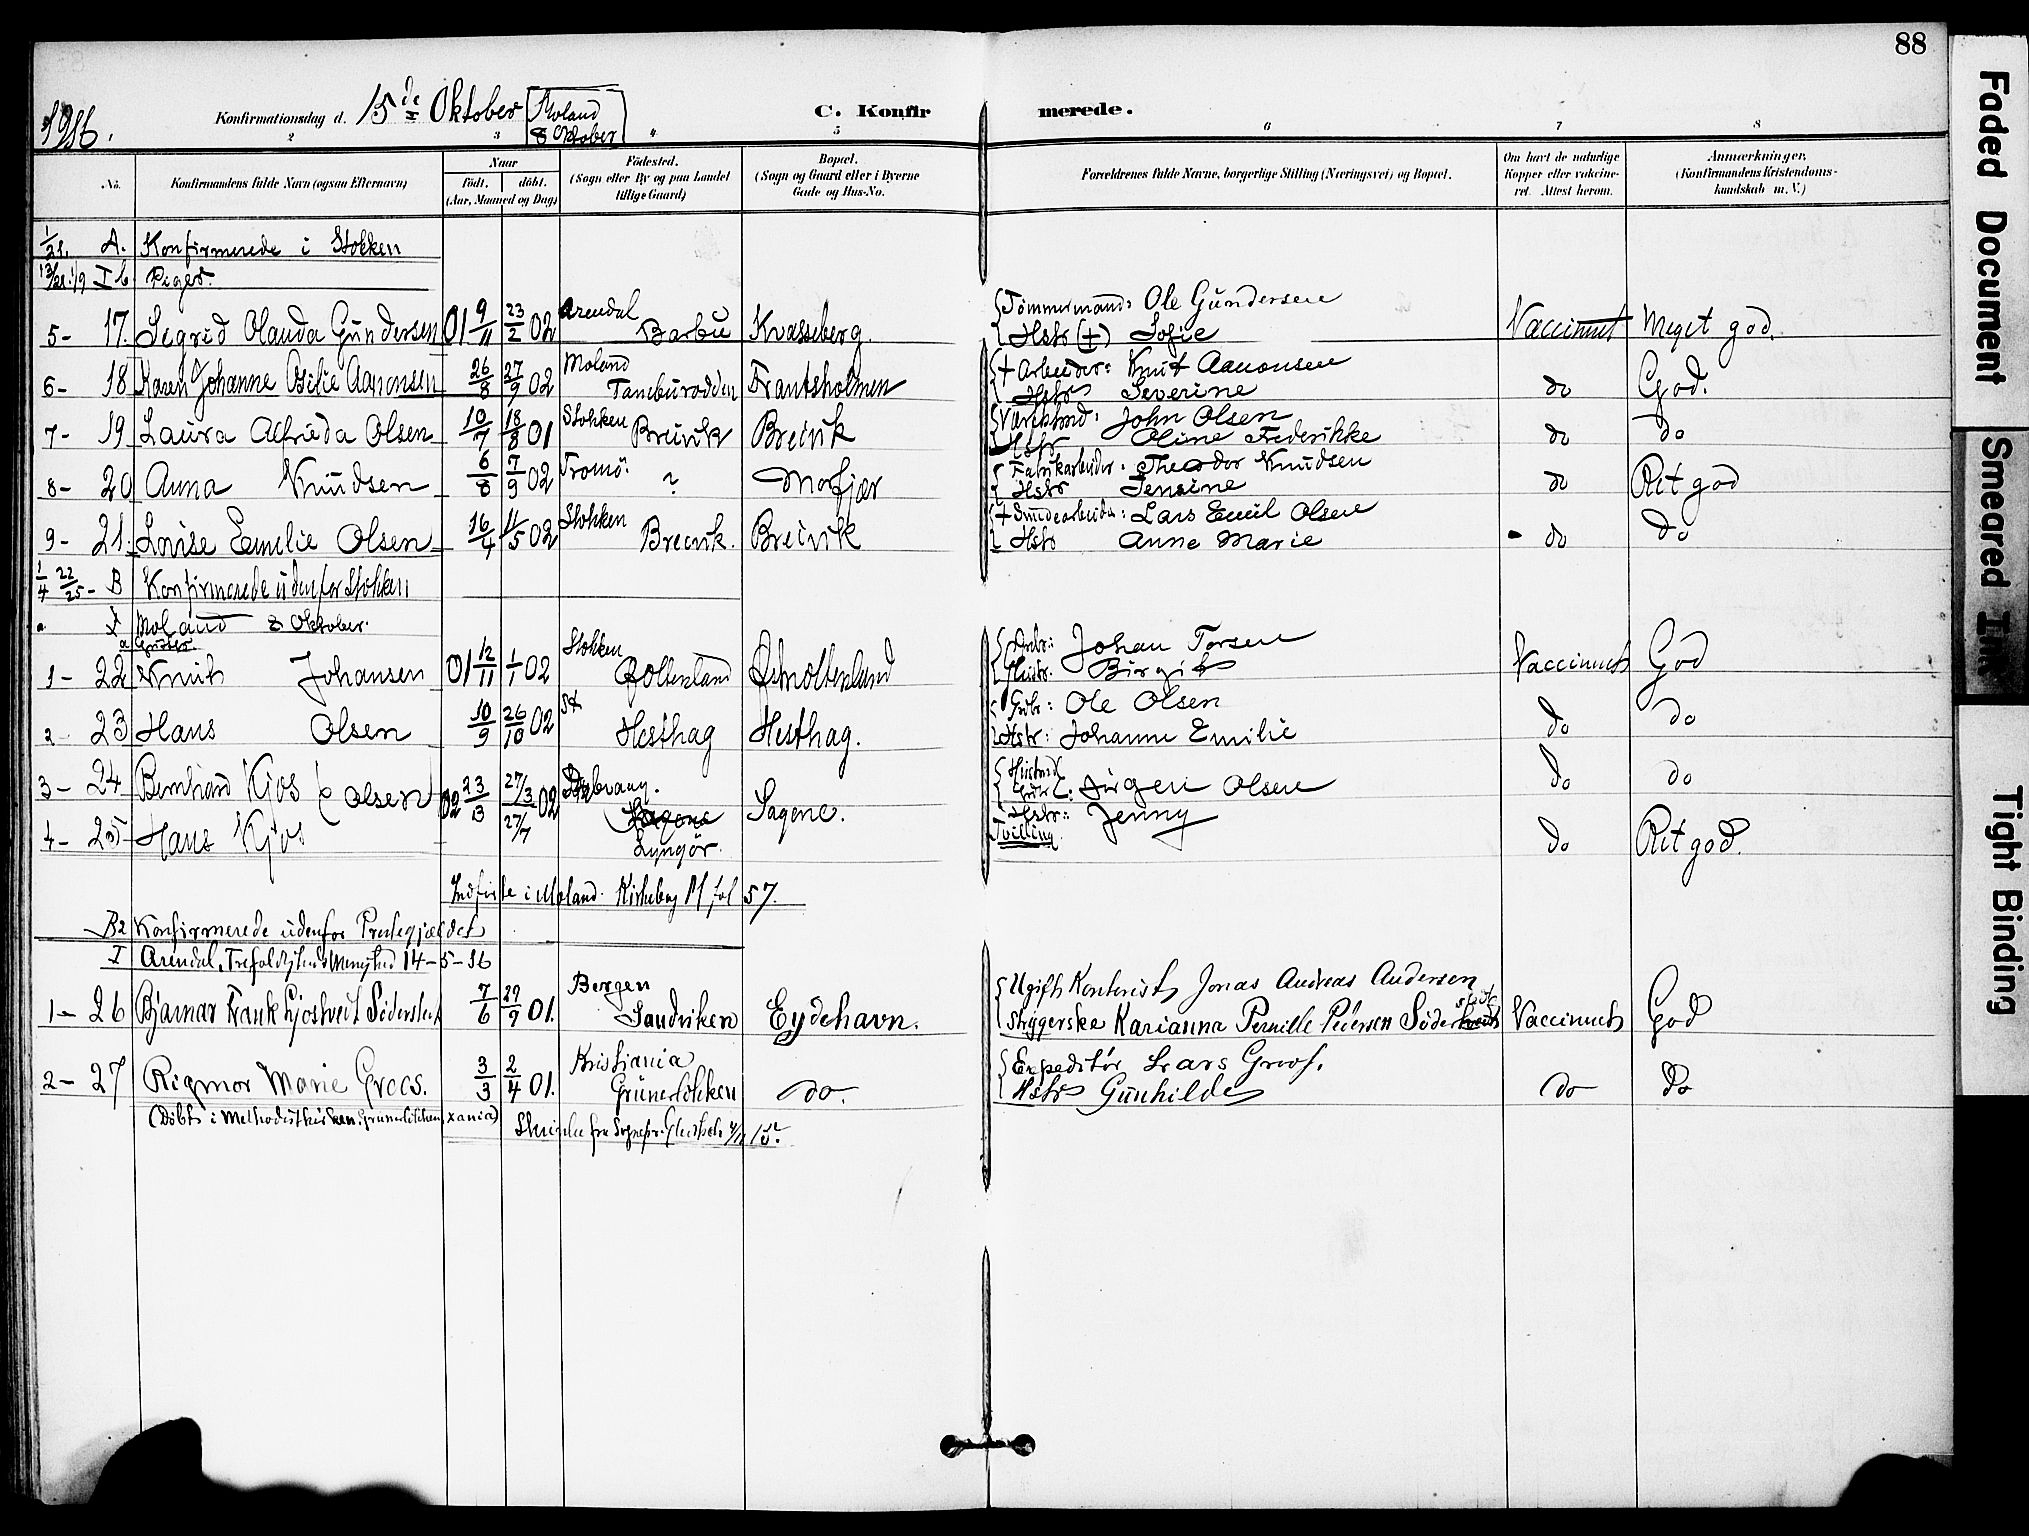 88
1916.
Konfirmationsdag d. 15de Oktober Moland 8 Oktober
C. Konfirmerede.
2 3 4 5 6 7 8
No. Konfirmandens fulde Navn (ogsaa Efternavn)
Naar födt. döbt. (Aar, Maaned og Dag)
Födested. (Sogn eller By og paa Landet tillige Gaard)
Bopæl. (Sogn og Gaard eller i Byerne Gade og Hus-No.
Forældrenes fulde Navne, borgerlige Stilling (Næringsvei) og Bopæl.
Om havt de naturlige Kopper eller vaccineret. Attest herom.
Anmærkninger, (Konfirmandens Kristendomskundskab m. V.)
1/21. A. Konfirmerede i Stokken
I b. Piger.
5- 17. Sigrid Olauda Gundersen 01 9/11 23/2 02 Arendal Barbu Kvasseberg. Tömmermand: Ole Gundersen Hstr (+) Sofie Vaccineret Meget god.
6- 18 Karen Johanne Otilie Aanonsen 26/8 27/9 02 Moland Tangburodden Frantsholmen + Arbeider: Knut Aanonsen Hstr Severine do God.
7- 19 Laura Alfrida Olsen 10/7 18/8 01 Stokken Breivik Breivik John Olsen Hstr Oline Frederikke do do
8- 20 Anna Knudsen 6/8 7/9 02 Tromö. ? Morfjær Fabrikarbeider: Theodor Knudsen Hstr Jensine do Ret god
9- 21. Lovise Emelie Olsen 16/4 11/5 02 Stokken Breivik. Breivik + Smedearbeider: Lars Emil Olsen Hstr Anne Marie do do
1/4 22/25 - B Konfirmerede udenfor Stokken
I Moland 8 Oktober.
a Gutter.
1- 22 Knut Johansen 01 12/11 1/1 02 Stokken Østmoltenland Johan Torsen Hustr. Birgit Vaccineret God
2- 23 Hans Olsen 10/9 26/10 02 St Hesthag Hesthag. Grbr: Ole Olsen Hstr: Johanne Emilie do do
3- 24 Bernhard Kjos Olsen 02 23/3 27/3 02 Dybvaag. Lyngör. Sagene. Jörgen Olsen Hstr: Jenny Tvilling do do
4- 25 Hans Kjos 27/7 do Ret god.
Indförte i Moland. Kirkebog M fol 57.
B2 Konfirmerede udenfor Prestegjældet
I Arendal, Trefoldighedsmenighed 14-5-16
1- 26 Bjarnar Frank Ljostveit Söderstedt 7/6 29/9 01. Bergen Sandviken Eydehavn. Ugift Kontorist Jonas Andreas Andersen Strygerske Karianna Pernille Pedersen Södersteit Vaccineret God
2- 27 Rigmor Marie Groos. 3/3 2/4 01. Kristiania Grünerlökken do. Expeditör Lars Groos. Hstr Gunhilde do do
(Döbt i Methodistkirken. Grunerlökken, Xania)
Faded Document
Smeared Ink
Tight Binding